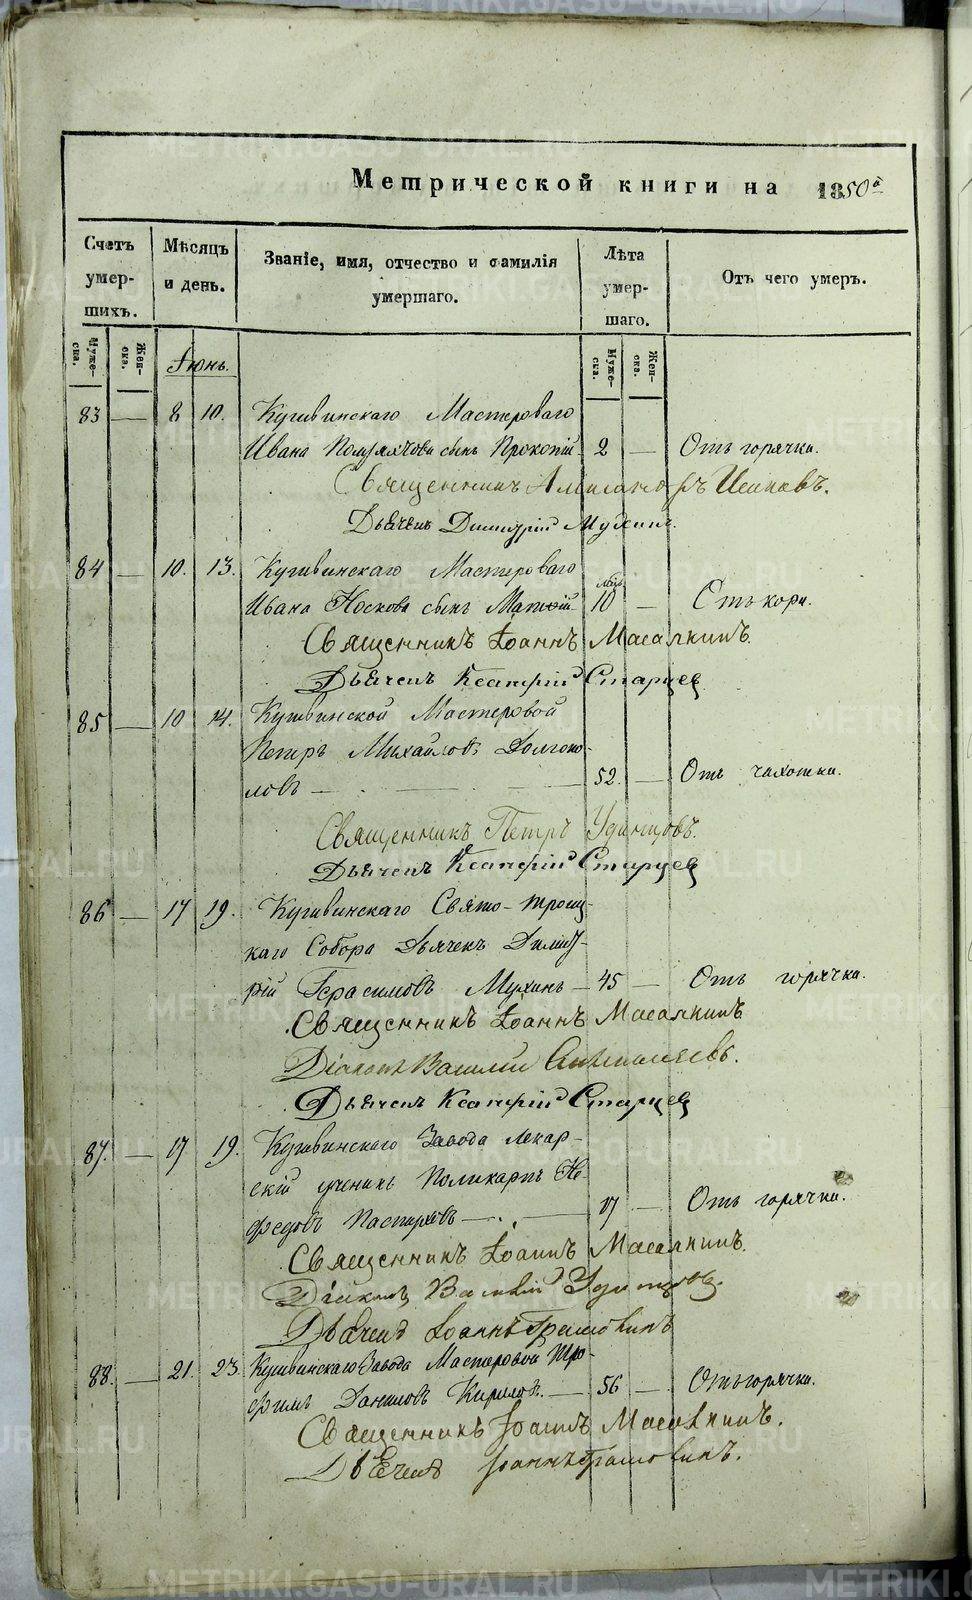 Метрической книги на 1850й
Счетъ умер- шихъ.
Мѣсяцъ и день.
Званіе, имя, отчество и фамилія умершаго.
Лѣта умер- шаго.
Отъ чего умеръ.
Муже- ска.
Жен- ска.
Іюнь.
Муже- ска.
Жен- ска.
83 — 8 10. Кушвинскаго Мастероваго
Ивана сынъ Прокопій. 2 — Отъ горячки.
Священникъ Александръ
Дьячекъ Димитрій Мухинъ.
84 — 10. 13. Кушвинскаго Мастероваго
Ивана Носкова сынъ Матѳій 10 мѣс. — Отъ кори.
Священникъ Іоаннъ Масалкинъ.
Дьячекъ Старцев
85 — 10 14. Кушвинской Мастеровой
Петръ Михайловъ Долгопо-
ловъ — 52. — Отъ чахотки.
Священникъ Петръ Удинцовъ.
Дьячекъ Старцев
86 — 17 19. Кушвинскаго Свято-Троиц-
каго Собора Дьячекъ Димит-
рій Герасимовъ Мухинъ — 45 — Отъ горячки.
Священникъ Іоаннъ Масалкинъ
Діаконъ Василий
Дьячекъ Старцев
87. — 17 19. Кушвинскаго Завода лекар-
скій ученикъ Поликарпъ Не-
федовъ — 17 — Отъ горячки.
Священникъ Іоаннъ Масалкинъ.
Діаконъ Василій Удинцовъ.
Дьячекъ Іоаннъ
88. — 21. 23. Кушвинскаго Завода Мастеровой Тро-
фимъ Даниловъ Кириловъ. — 56 — Отъ горячки.
Священникъ Іоаннъ Масалкинъ.
Дьячекъ Іоаннъ
METRIKI.GASO-URAL.RU